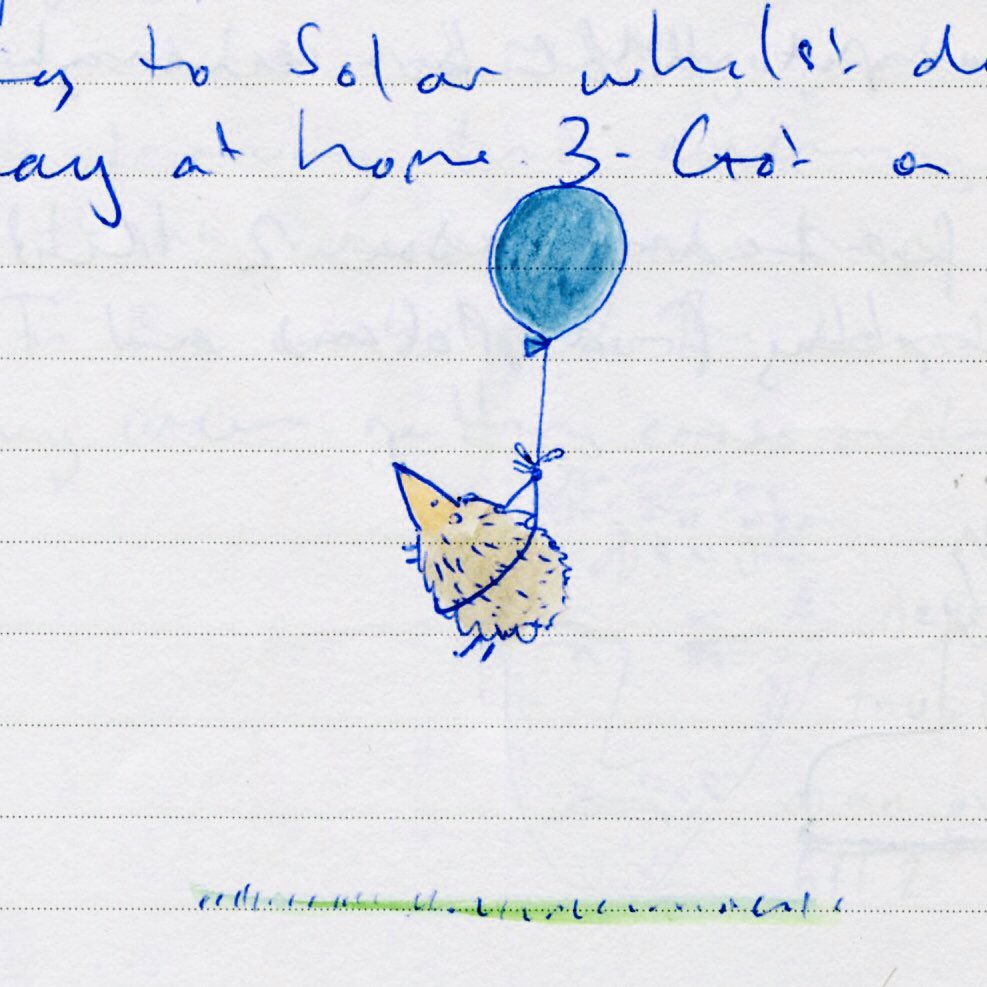 to Solar whilst
ay at home. 3- Got on